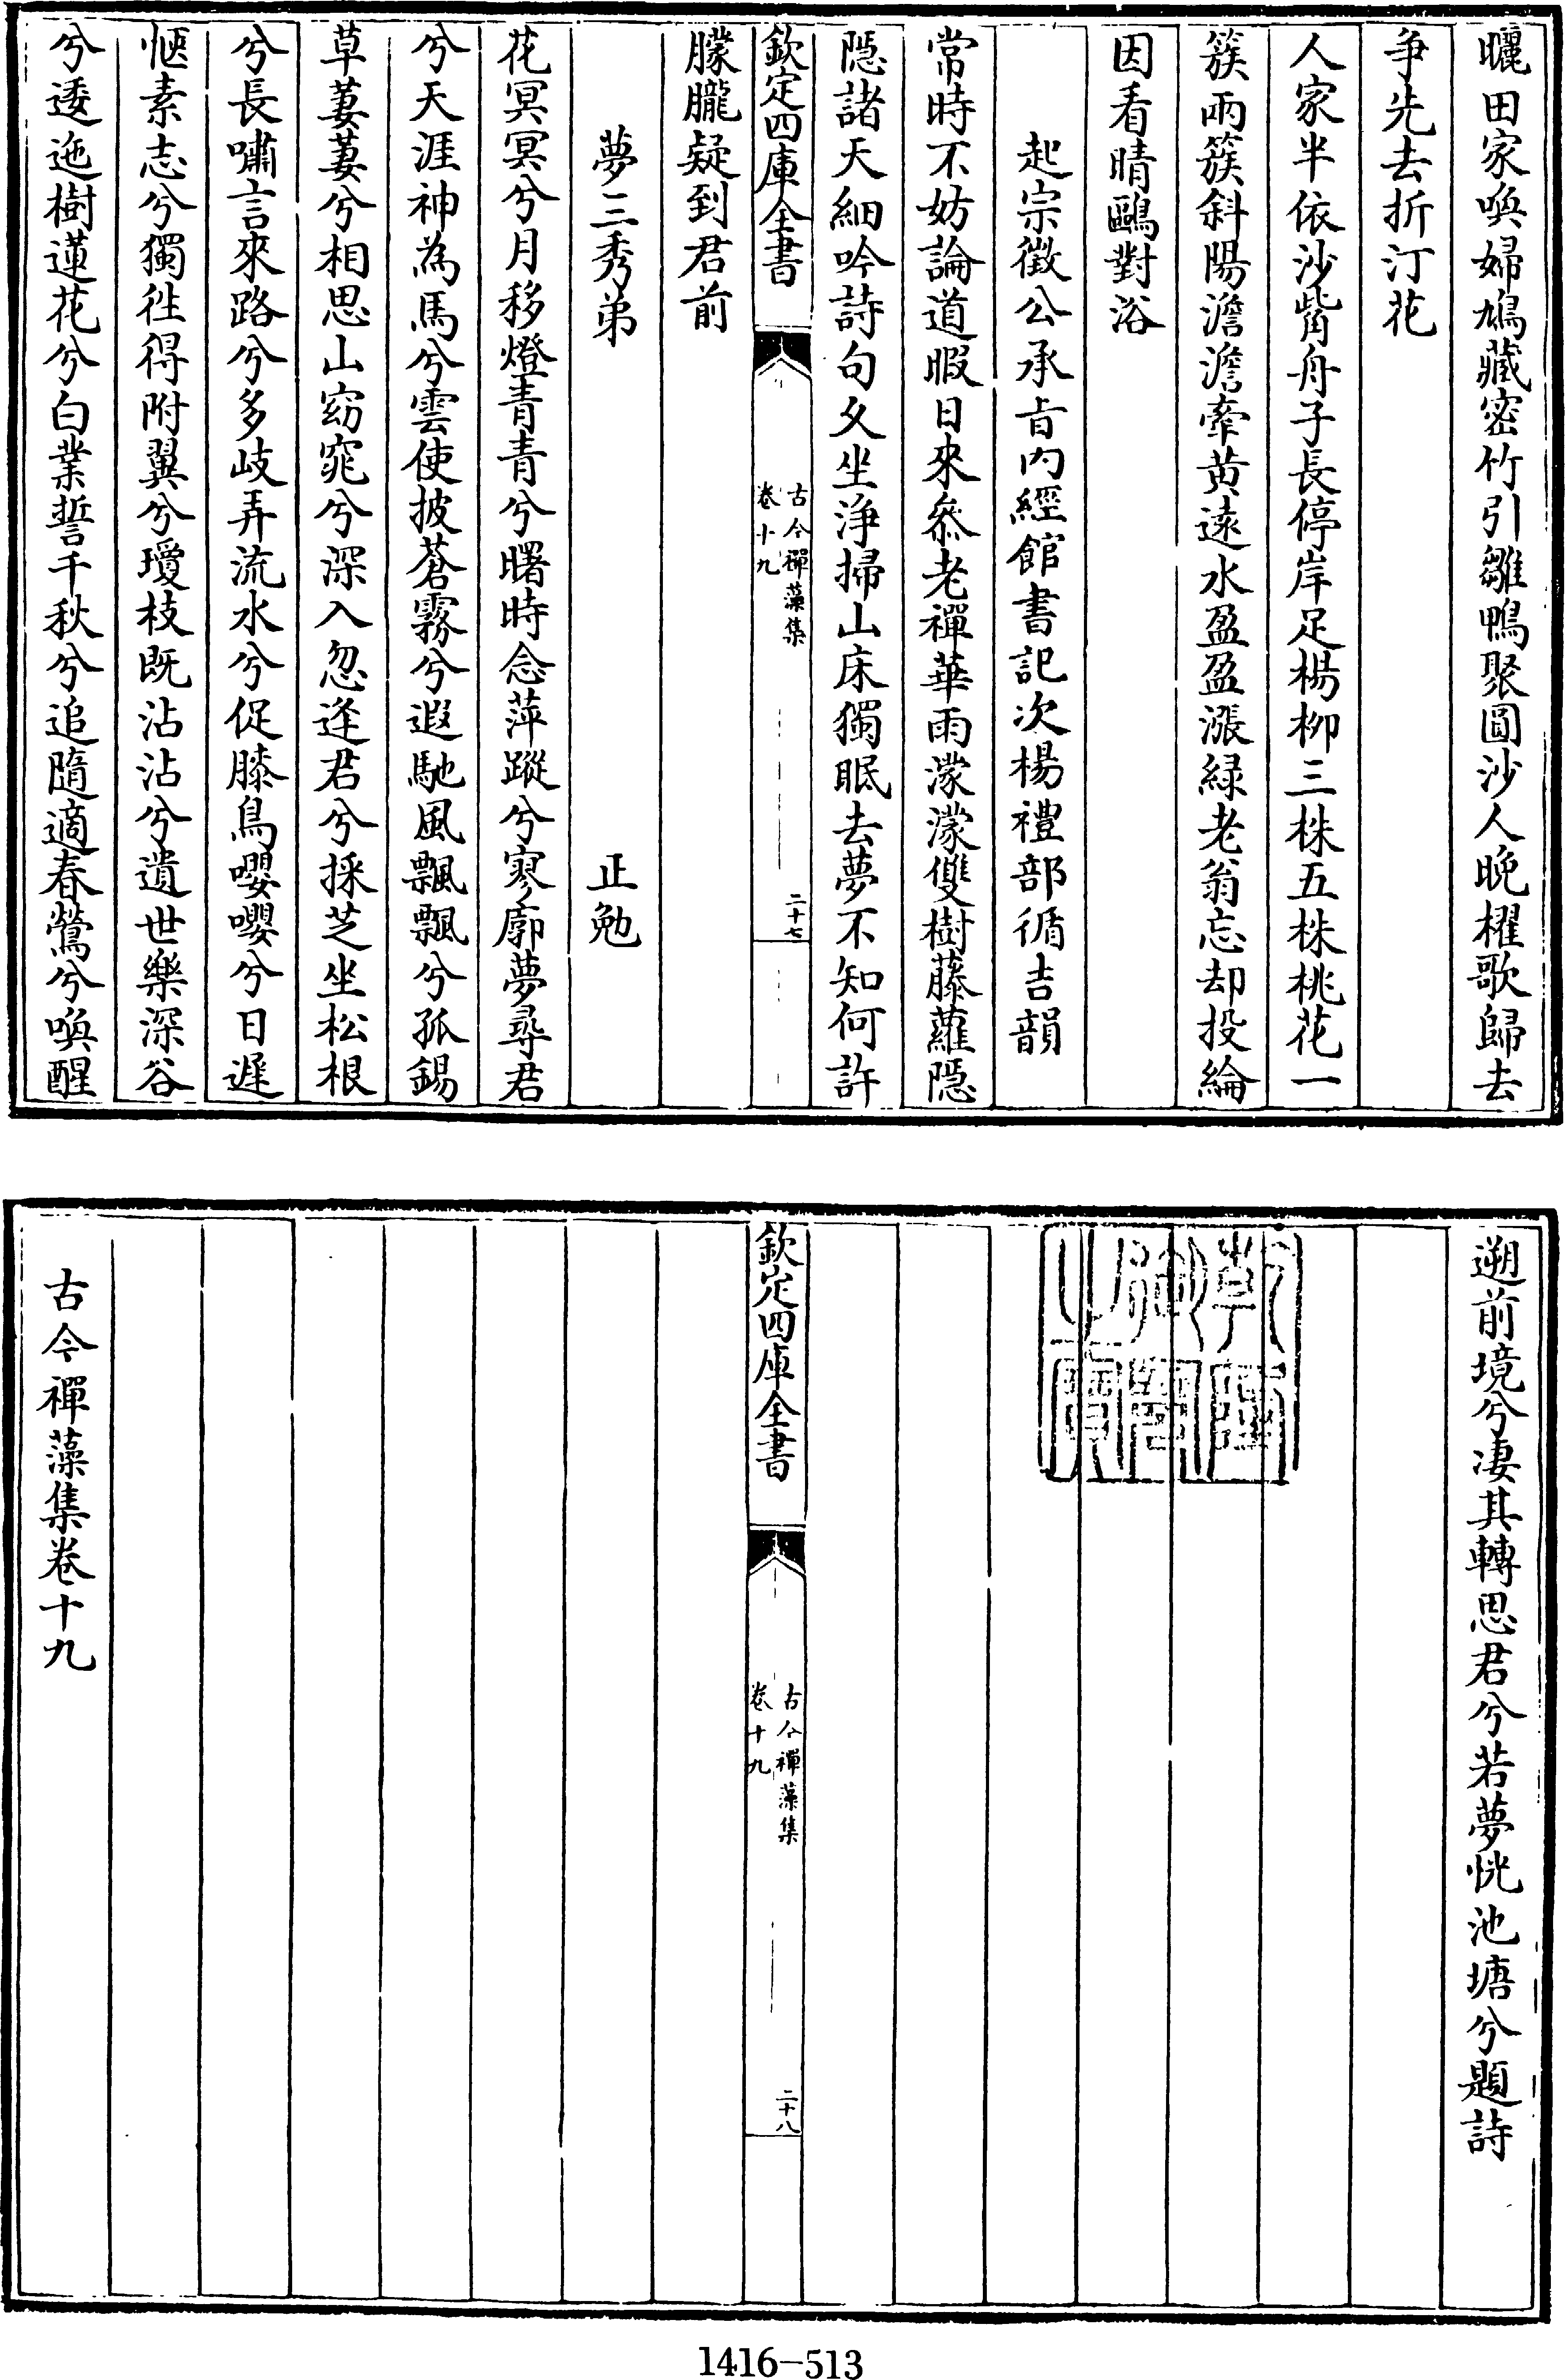 曬田家喚婦鳩藏密竹引雛鴨聚圓沙人晚櫂歌歸去
爭先去折汀花
人家半依沙觜舟子長停岸足楊柳三株五株桃花一
簇兩簇斜陽澹澹牽黄遠水盈盈漲緑老翁忘却投綸
因看晴鷗對浴
起宗徵公承㫖内經館書記次楊禮部循吉韻
常時不妨論道暇日來叅老禪華雨濛濛雙樹藤蘿隠
隠諸天細吟詩句久坐浄掃山床獨眠去夢不知何許
欽定四庫全書
古今禪藻集
卷十九
二十七
朦朧疑到君前
夢三秀弟 正勉
花冥冥兮月移燈青青兮曙時念萍蹤兮寥廓夢尋君
兮天涯神為馬兮雲使披蒼霧兮遐馳風飄飄兮孤錫
草萋萋兮相思山窈窕兮深入忽逢君兮採芝坐松根
兮長嘯言來路兮多岐弄流水兮促膝鳥嚶嚶兮日遲
愜素志兮獨徃得附翼兮瓊枝既沾沾兮遺世樂深谷
兮逶迤樹蓮花兮白業誓千秋兮追隨適春鶯兮喚醒
遡前境兮凄其轉思君兮若夢恍池塘兮題詩
欽定四庫全書
古今禪藻集
卷十九
二十八
古今禪藻集卷十九
1416-513